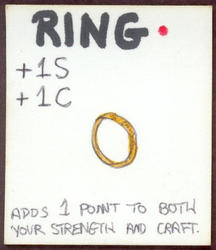 RING
+1S
+1C
ADDS 1 POINT TO BOTH
YOUR STRENGTH AND CRAFT.